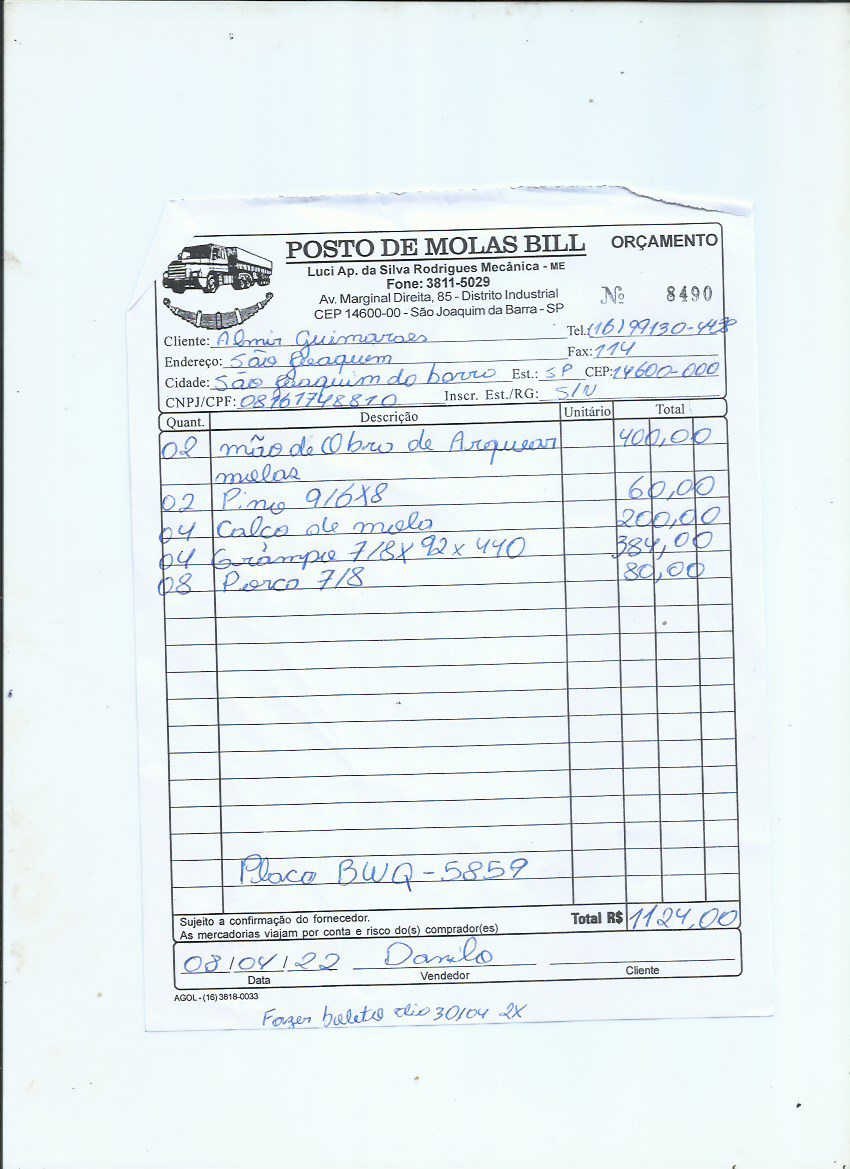 POSTO DE MOLAS BILL ORÇAMENTO
Luci Ap. da Silva Rodrigues Mecânica - ME
Fone: 3811-5029
Av. Marginal Direita, 85 - Distrito Industrial
CEP 14600-00 - São Joaquim da Barra - SP
Nº 8490
Cliente: Almir Guimaraes Tel.(16)99130-4438
Endereço: São Joaquem Fax: 114
Cidade: São Joaquim do barro Est.: SP CEP: 14600-000
CNPJ/CPF: 08761748810 Inscr. Est./RG: S/N
Quant. Descrição Unitário Total
02 mão de Obro de Arquear 400,00
molas
02 Pino 9/6X8 60,00
04 Calco de molo 200,00
04 Grampo 7/8 X 92 x 440 384,00
08 Porco 7/8 80,00
Placo BWQ-5859
Sujeito a confirmação do fornecedor.
As mercadorias viajam por conta e risco do(s) comprador(es)
Total R$ 1124,00
08/04/22 Danilo
Data Vendedor Cliente
AGOL - (16) 3818-0033
Fazer boleto dia 30/04 2X